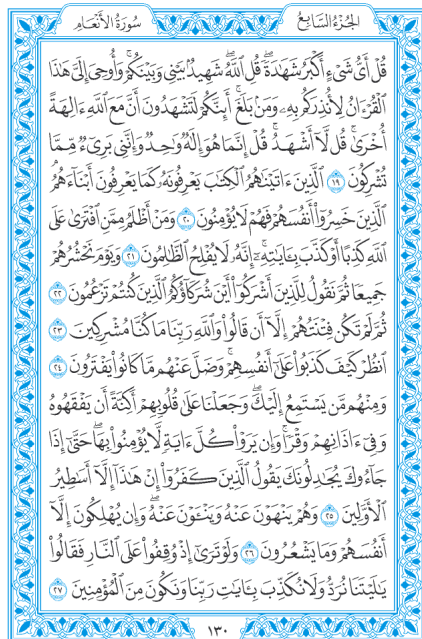 الجُزءُ السَّابِعُ
سُورَةُ الأَنْعَامِ
قُلْ أَىُّ شَىْءٍ أَكْبَرُ شَهَٰدَةً ۖ قُلِ ٱللَّهُ ۖ شَهِيدٌۢ بَيْنِى وَبَيْنَكُمْ ۚ وَأُوحِىَ إِلَىَّ هَٰذَا
ٱلْقُرْءَانُ لِأُنذِرَكُم بِهِۦ وَمَنۢ بَلَغَ ۚ أَئِنَّكُمْ لَتَشْهَدُونَ أَنَّ مَعَ ٱللَّهِ ءَالِهَةً
أُخْرَىٰ ۚ قُل لَّآ أَشْهَدُ ۚ قُلْ إِنَّمَا هُوَ إِلَٰهٌ وَٰحِدٌ وَإِنَّنِى بَرِىٓءٌ مِّمَّا
تُشْرِكُونَ ١٩ ٱلَّذِينَ ءَاتَيْنَٰهُمُ ٱلْكِتَٰبَ يَعْرِفُونَهُۥ كَمَا يَعْرِفُونَ أَبْنَآءَهُمُ
ٱلَّذِينَ خَسِرُوٓا۟ أَنفُسَهُمْ فَهُمْ لَا يُؤْمِنُونَ ٢٠ وَمَنْ أَظْلَمُ مِمَّنِ ٱفْتَرَىٰ عَلَى
ٱللَّهِ كَذِبًا أَوْ كَذَّبَ بِـَٔايَٰتِهِۦٓ ۗ إِنَّهُۥ لَا يُفْلِحُ ٱلظَّٰلِمُونَ ٢١ وَيَوْمَ نَحْشُرُهُمْ
جَمِيعًا ثُمَّ نَقُولُ لِلَّذِينَ أَشْرَكُوٓا۟ أَيْنَ شُرَكَآؤُكُمُ ٱلَّذِينَ كُنتُمْ تَزْعُمُونَ ٢٢
ثُمَّ لَمْ تَكُن فِتْنَتُهُمْ إِلَّآ أَن قَالُوا۟ وَٱللَّهِ رَبِّنَا مَا كُنَّا مُشْرِكِينَ ٢٣
ٱنظُرْ كَيْفَ كَذَبُوا۟ عَلَىٰٓ أَنفُسِهِمْ ۚ وَضَلَّ عَنْهُم مَّا كَانُوا۟ يَفْتَرُونَ ٢٤
وَمِنْهُم مَّن يَسْتَمِعُ إِلَيْكَ ۖ وَجَعَلْنَا عَلَىٰ قُلُوبِهِمْ أَكِنَّةً أَن يَفْقَهُوهُ
وَفِىٓ ءَاذَانِهِمْ وَقْرًا ۚ وَإِن يَرَوْا۟ كُلَّ ءَايَةٍ لَّا يُؤْمِنُوا۟ بِهَا ۚ حَتَّىٰٓ إِذَا
جَآءُوكَ يُجَٰدِلُونَكَ يَقُولُ ٱلَّذِينَ كَفَرُوٓا۟ إِنْ هَٰذَآ إِلَّآ أَسَٰطِيرُ
ٱلْأَوَّلِينَ ٢٥ وَهُمْ يَنْهَوْنَ عَنْهُ وَيَنْـَٔوْنَ عَنْهُ ۖ وَإِن يُهْلِكُونَ إِلَّآ
أَنفُسَهُمْ وَمَا يَشْعُرُونَ ٢٦ وَلَوْ تَرَىٰٓ إِذْ وُقِفُوا۟ عَلَى ٱلنَّارِ فَقَالُوا۟
يَٰلَيْتَنَا نُرَدُّ وَلَا نُكَذِّبَ بِـَٔايَٰتِ رَبِّنَا وَنَكُونَ مِنَ ٱلْمُؤْمِنِينَ ٢٧
١٣٠